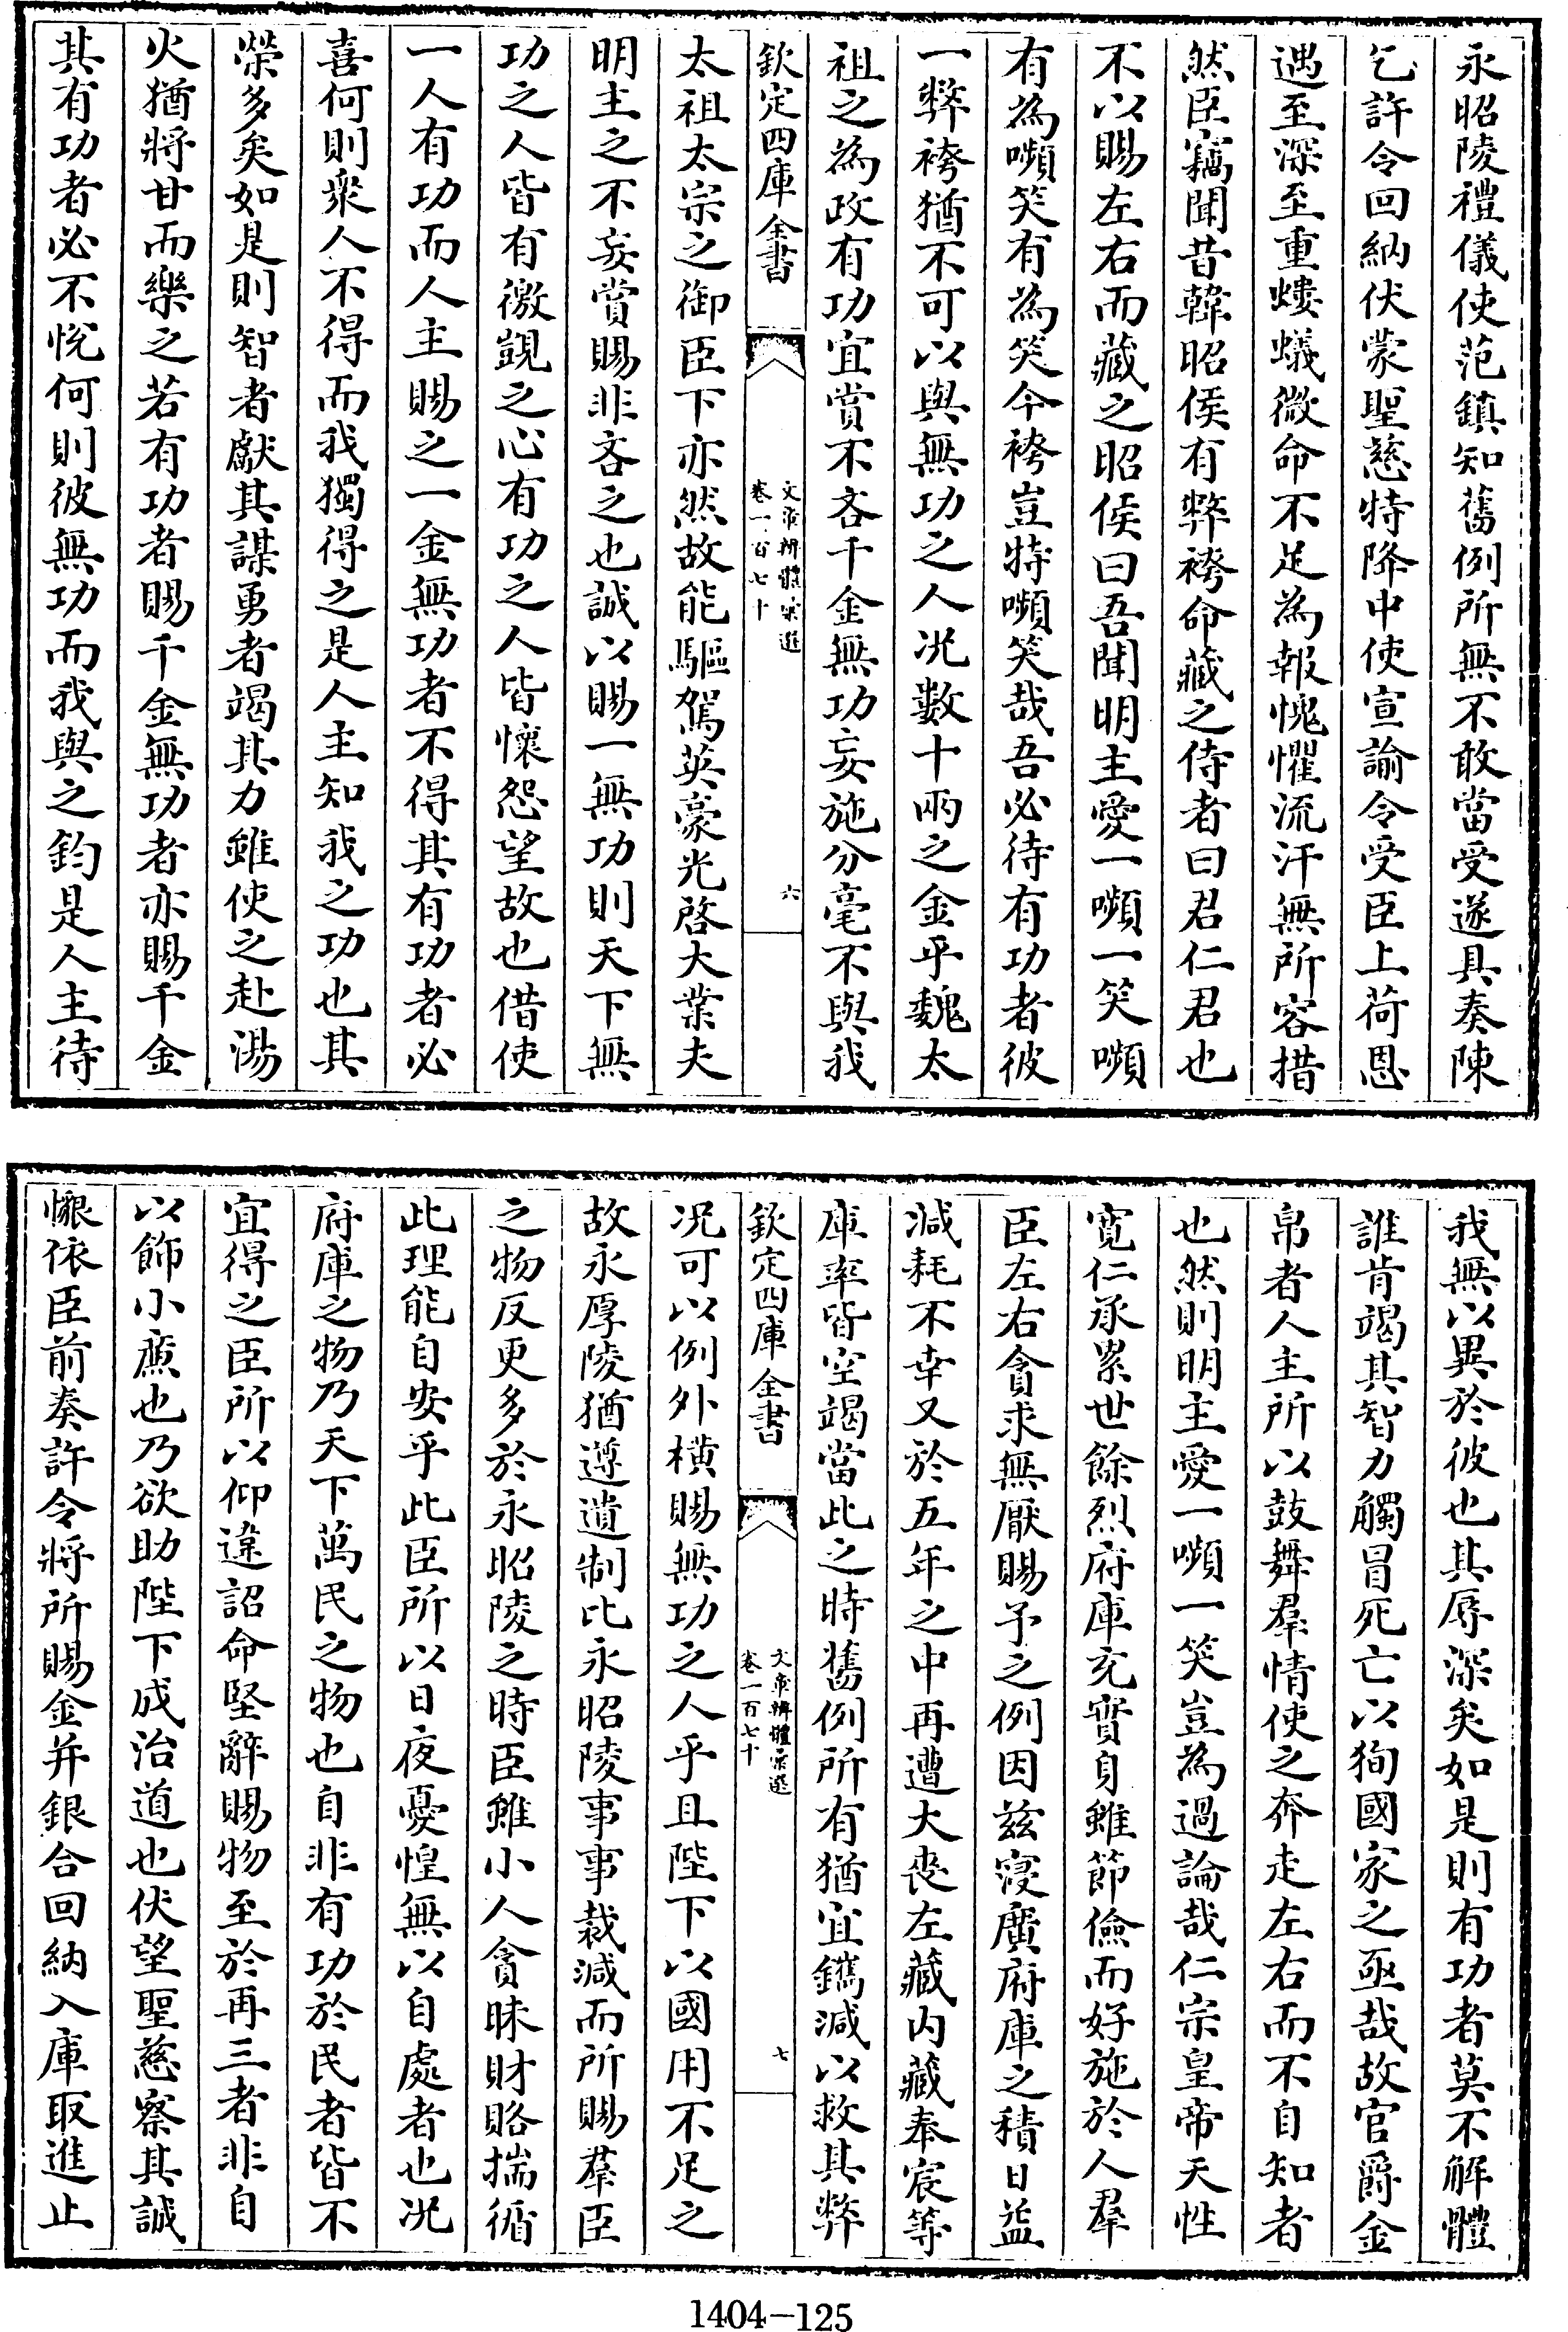 永昭陵禮儀使范鎮知舊例所無不敢當受遂具奏陳
乞許令回納伏蒙聖慈特降中使宣諭令受臣上荷恩
遇至深至重螻蟻微命不足為報愧懼流汗無所容措
然臣竊聞昔韓昭侯有弊袴命藏之侍者曰君仁君也
不以賜左右而藏之昭侯曰吾聞明主愛一嚬一笑嚬
有為嚬笑有為笑今袴豈特嚬笑哉吾必待有功者彼
一弊袴猶不可以與無功之人况數十兩之金乎魏太
祖之為政有功宜賞不吝千金無功妄施分毫不與我
欽定四庫全書
文章辨體彚選
卷一百七十
六
太祖太宗之御臣下亦然故能驅駕英豪光啓大業夫
明主之不妄賞賜非吝之也誠以賜一無功則天下無
功之人皆有徼覬之心有功之人皆懷怨望故也借使
一人有功而人主賜之一金無功者不得其有功者必
喜何則衆人不得而我獨得之是人主知我之功也其
榮多矣如是則智者獻其謀勇者竭其力雖使之赴湯
火猶將甘而樂之若有功者賜千金無功者亦賜千金
其有功者必不悅何則彼無功而我與之鈞是人主待
我無以異於彼也其辱深矣如是則有功者莫不解體
誰肯竭其智力觸冒死亡以狥國家之亟哉故官爵金
帛者人主所以鼓舞羣情使之奔走左右而不自知者
也然則明主愛一嚬一笑豈為過論哉仁宗皇帝天性
寛仁承累世餘烈府庫充實身雖節儉而好施於人羣
臣左右貪求無厭賜予之例因兹寖廣府庫之積日益
減耗不幸又於五年之中再遭大喪左藏内藏奉宸等
庫率皆空竭當此之時舊例所有猶宜鐫減以救其弊
欽定四庫全書
文章辨體彚選
卷一百七十
七
况可以例外横賜無功之人乎且陛下以國用不足之
故永厚陵猶遵遺制比永昭陵事事裁減而所賜羣臣
之物反更多於永昭陵之時臣雖小人貪昧財賂揣循
此理能自安乎此臣所以日夜憂惶無以自處者也况
府庫之物乃天下萬民之物也自非有功於民者皆不
宜得之臣所以仰違詔命堅辭賜物至於再三者非自
以飾小㢘也乃欲助陛下成治道也伏望聖慈察其誠
懇依臣前奏許令將所賜金并銀合回納入庫取進止
1404-125